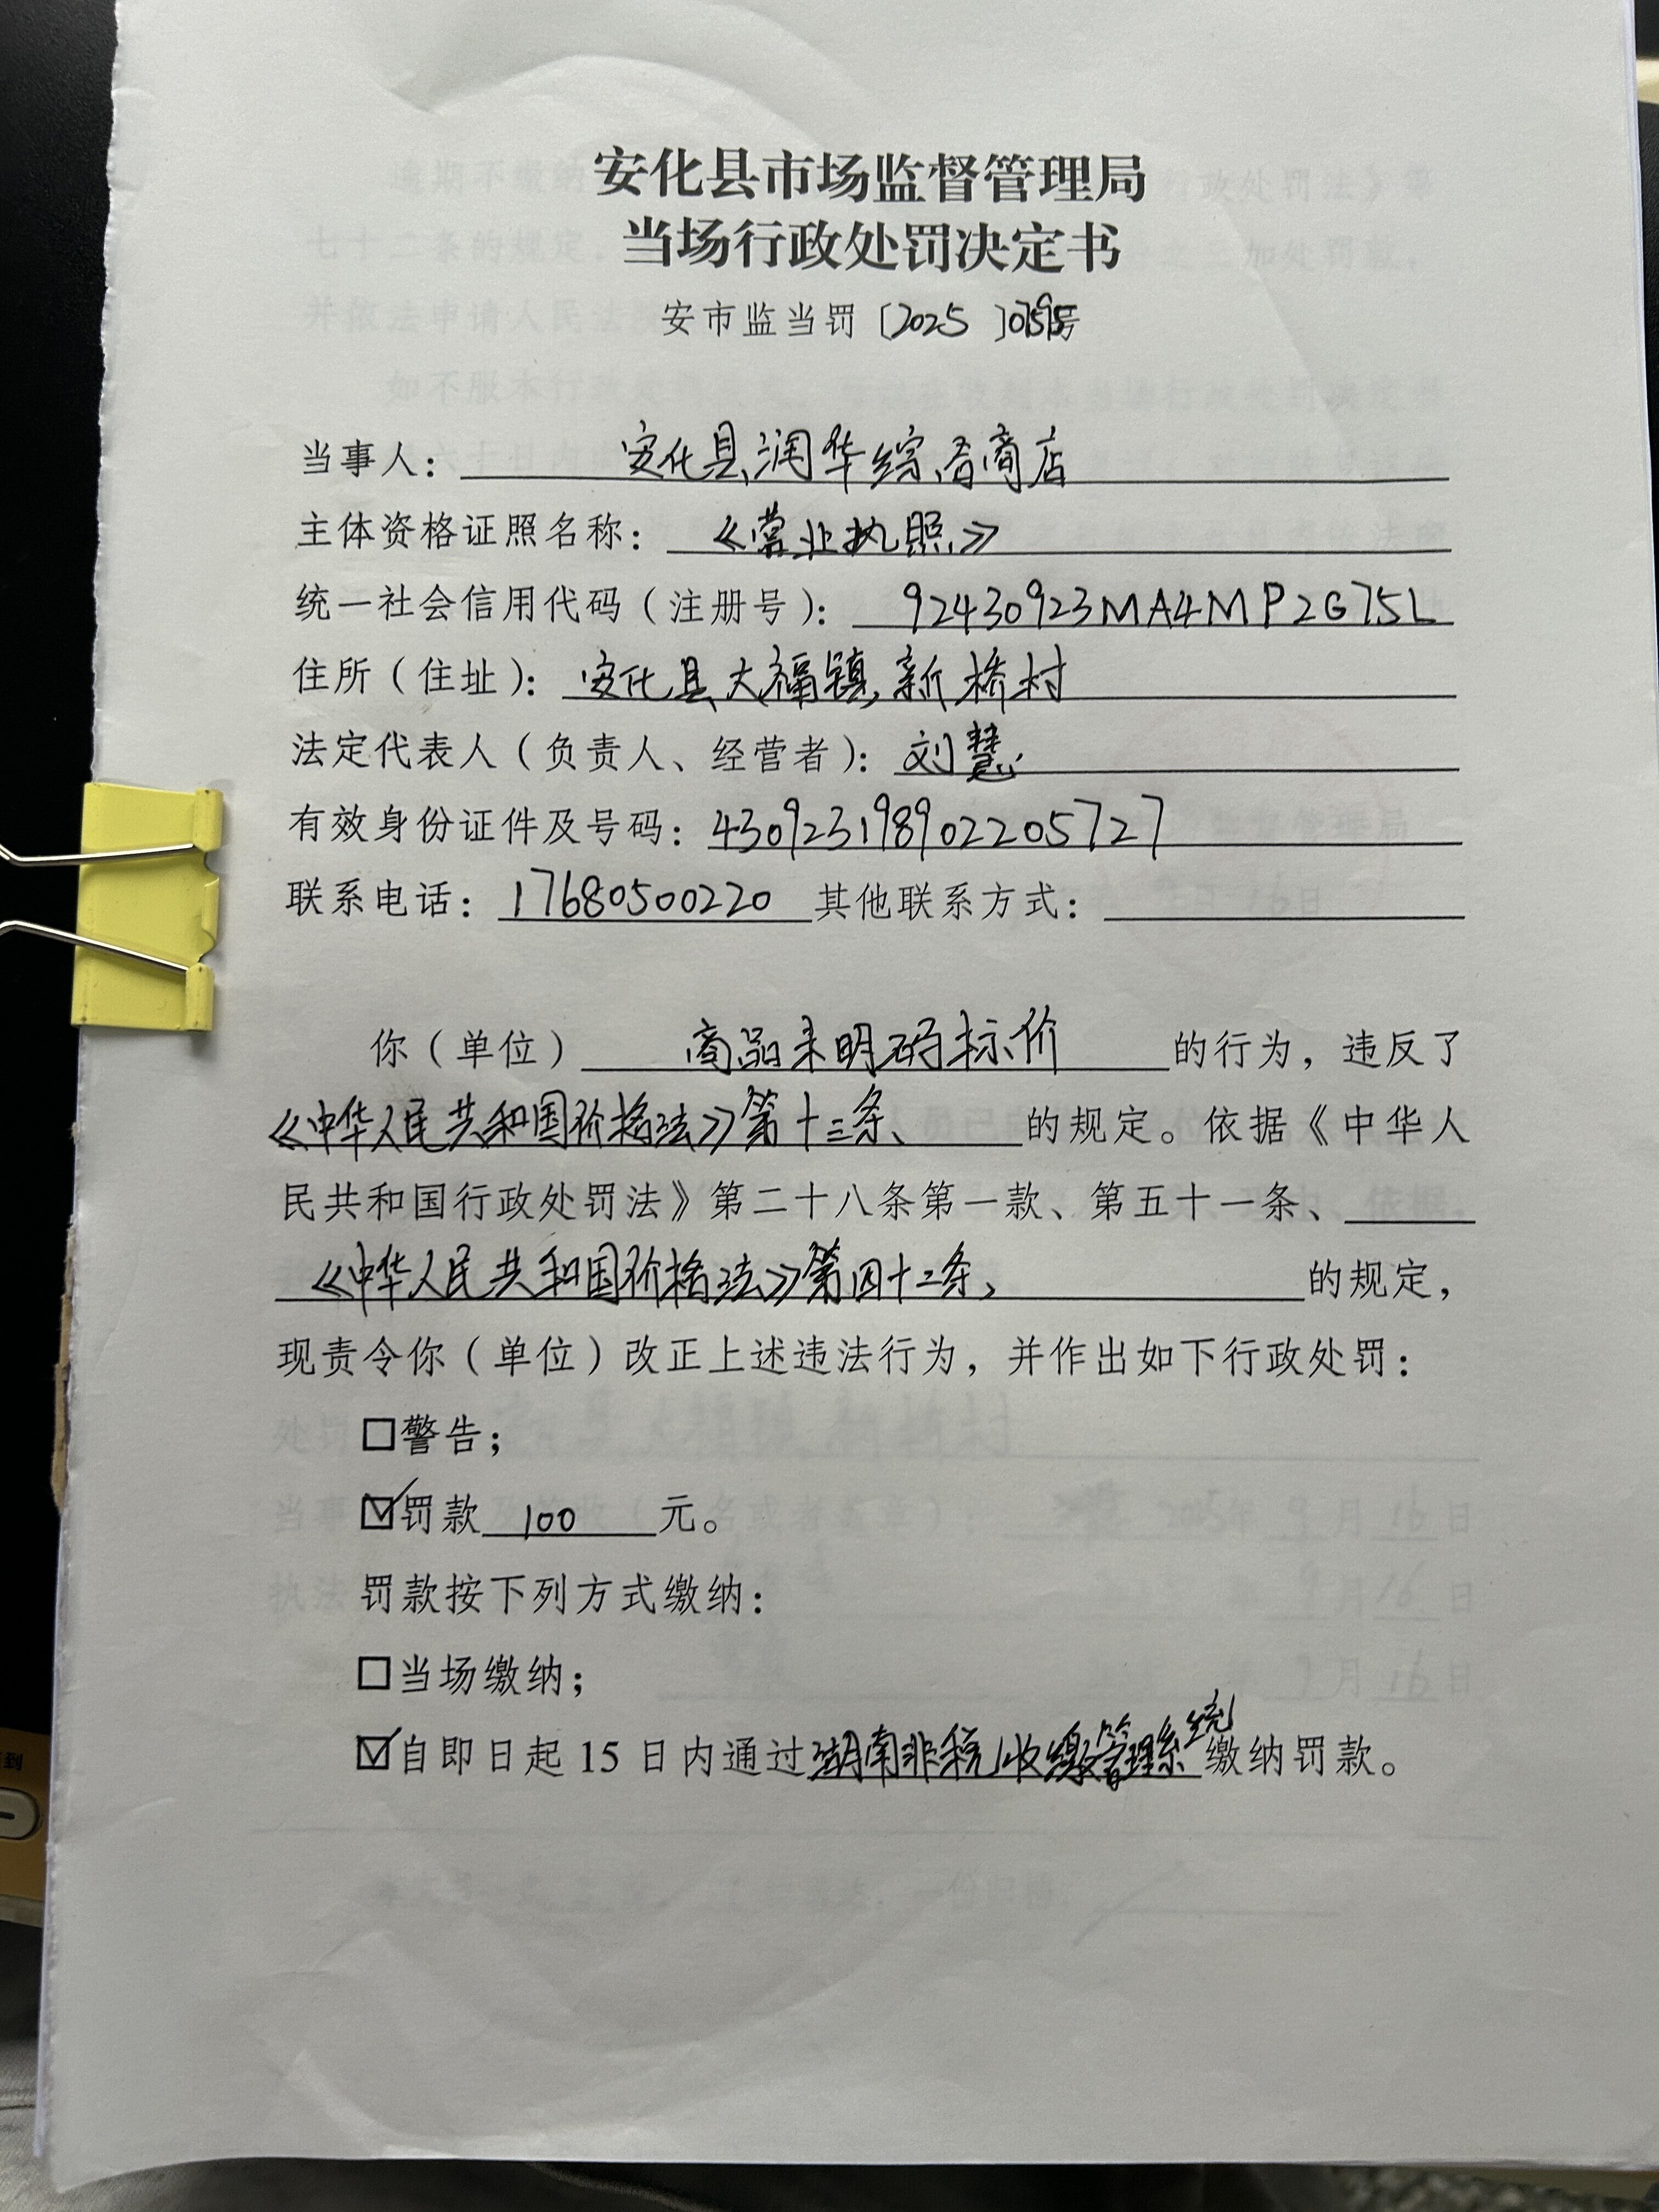 安化县市场监督管理局
当场行政处罚决定书
安市监当罚〔2025 〕号
当事人：安化县润华综合商店
主体资格证照名称：《营业执照》
统一社会信用代码（注册号）：92430923MA4MP2G75L
住所（住址）：安化县大福镇新桥村
法定代表人（负责人、经营者）：刘慧
有效身份证件及号码：430923198902205727
联系电话：17680500220 其他联系方式：
你（单位）商品未明码标价的行为，违反了
《中华人民共和国价格法》第十三条、的规定。依据《中华人
民共和国行政处罚法》第二十八条第一款、第五十一条、
《中华人民共和国价格法》第四十二条、的规定，
现责令你（单位）改正上述违法行为，并作出如下行政处罚：
□警告；
☑罚款 100 元。
罚款按下列方式缴纳：
□当场缴纳；
☑自即日起 15 日内通过湖南非税收缴管理系统缴纳罚款。